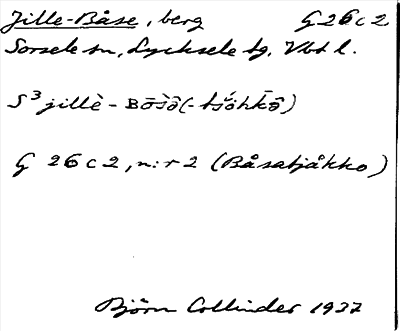 Jille-Båse, berg G 26 c 2
Sorsele sn, Lycksele tg, Vbt l.
S³ jillè - Bṑsò̂ (- tśóhkō̂)
G 26 c 2, n:r 2 (Båsatjåkko)
Björn Collinder 1937